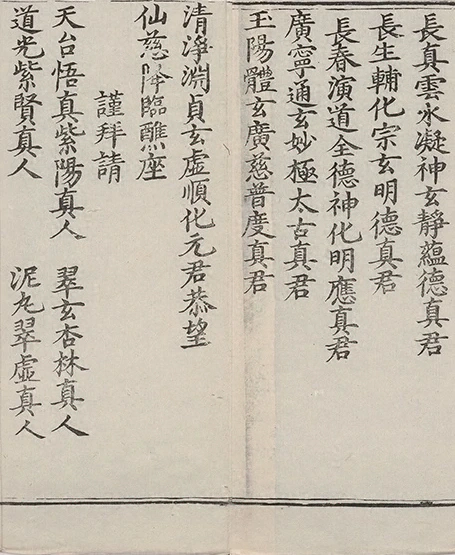 長真雲水凝神玄靜蘊德真君
長生輔化宗玄明德真君
長春演道全德神化明應真君
廣寧通玄妙極太古真君
玉陽體玄廣慈普度真君
清淨淵貞玄虛順化元君恭望
仙慈降臨醮座
謹拜請
天台悟真紫陽真人 翠玄杏林真人
道光紫賢真人 泥丸翠虛真人